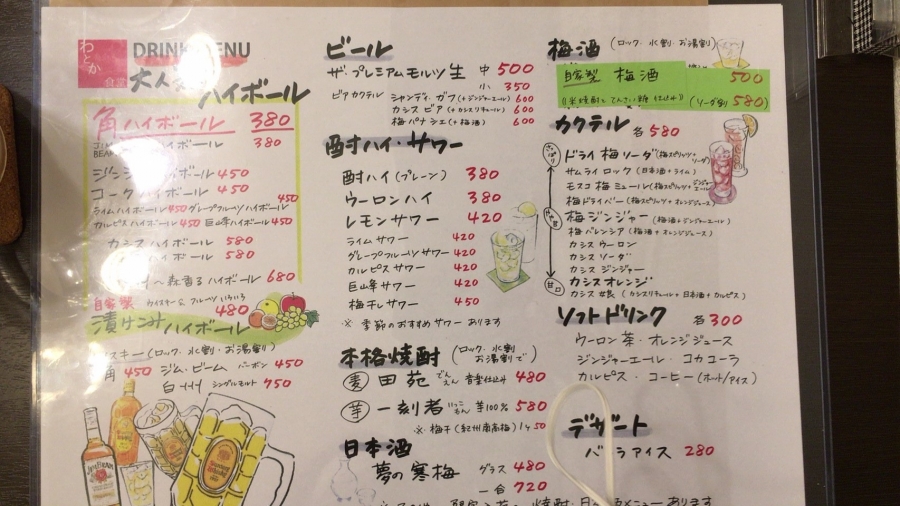 わとか
食堂
DRINK MENU
ハイボール
角ハイボール 380
ハイボール 380
ジンジャーハイボール 450
コークハイボール 450
ライムハイボール 450 グレープフルーツハイボール 450
カルピスハイボール 450 巨山峯ハイボール 450
カシスハイボール 580
ハイボール 580
～森香るハイボール 680
自家製 ウイスキー&フルーツいろいろ
漬けこみハイボール 480
(ロック・水割・お湯割)
角 450 ジム・ビーム バーボン 450
白州 シングルモルト 750
ビール
ザ・プレミアムモルツ生 中 500
小 350
ビアカクテル シャンディ ガフ(+ジンジャーエール) 600
カシス ビア(+カシスリキュール) 600
梅パナシェ(+梅酒) 600
酎ハイ・サワー
酎ハイ(プレーン) 380
ウーロンハイ 380
レモンサワー 420
ライムサワー 420
グレープフルーツサワー 420
カルピスサワー 420
巨山峯サワー 420
梅干しサワー 450
※季節のおすすめサワーあります
本格焼酎 (ロック・水割 お湯割で)
麦 田苑 でんえん 音楽仕込み 480
芋 一刻者 いっこもん 芋100% 580
※梅干(紀州南高梅)1ヶ50
日本酒
夢の寒梅 グラス 480
一合 720
焼酎・日本酒メニューあります
梅酒 (ロック・水割・お湯割)
自家製 梅酒 500
《米焼酎とてんさい糖仕込み》(ソーダ割り 580)
カクテル 各580
さっぱり
ドライ梅ソーダ(梅スピリッツ+ソーダ)
サムライロック(日本酒+ライム)
モスコ梅ミュール(梅スピリッツ+ジンジャーエール)
梅ドライバー(梅スピリッツ+オレンジジュース)
梅ジンジャー(梅酒+ジンジャーエール)
梅バレンシア(梅酒+オレンジジュース)
カシスウーロン
カシスソーダ
カシスジンジャー
甘口
カシスオレンジ
カシス女装(カシスリキュール+日本酒+カルピス)
ソフトドリンク 各300
ウーロン茶・オレンジジュース
ジンジャーエール・コカコーラ
カルピス・コーヒー(ホット/アイス)
デザート
バニラアイス 280